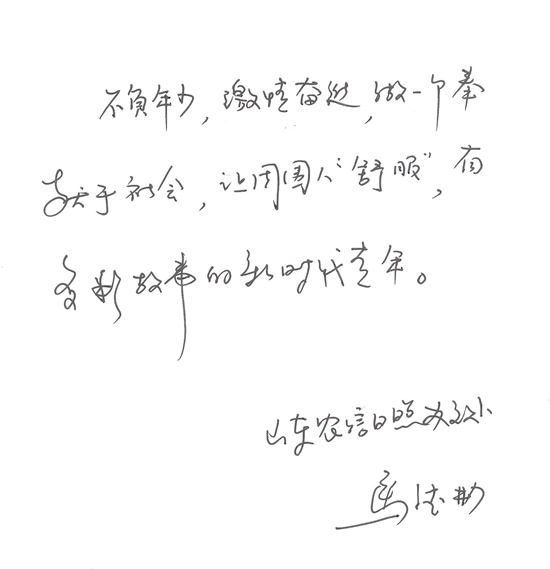 不负年少，激情奋进，做一个奉
献于社会，让周围人“舒服”，有
多彩故事的新时代青年。
山东农信日照
马德勤